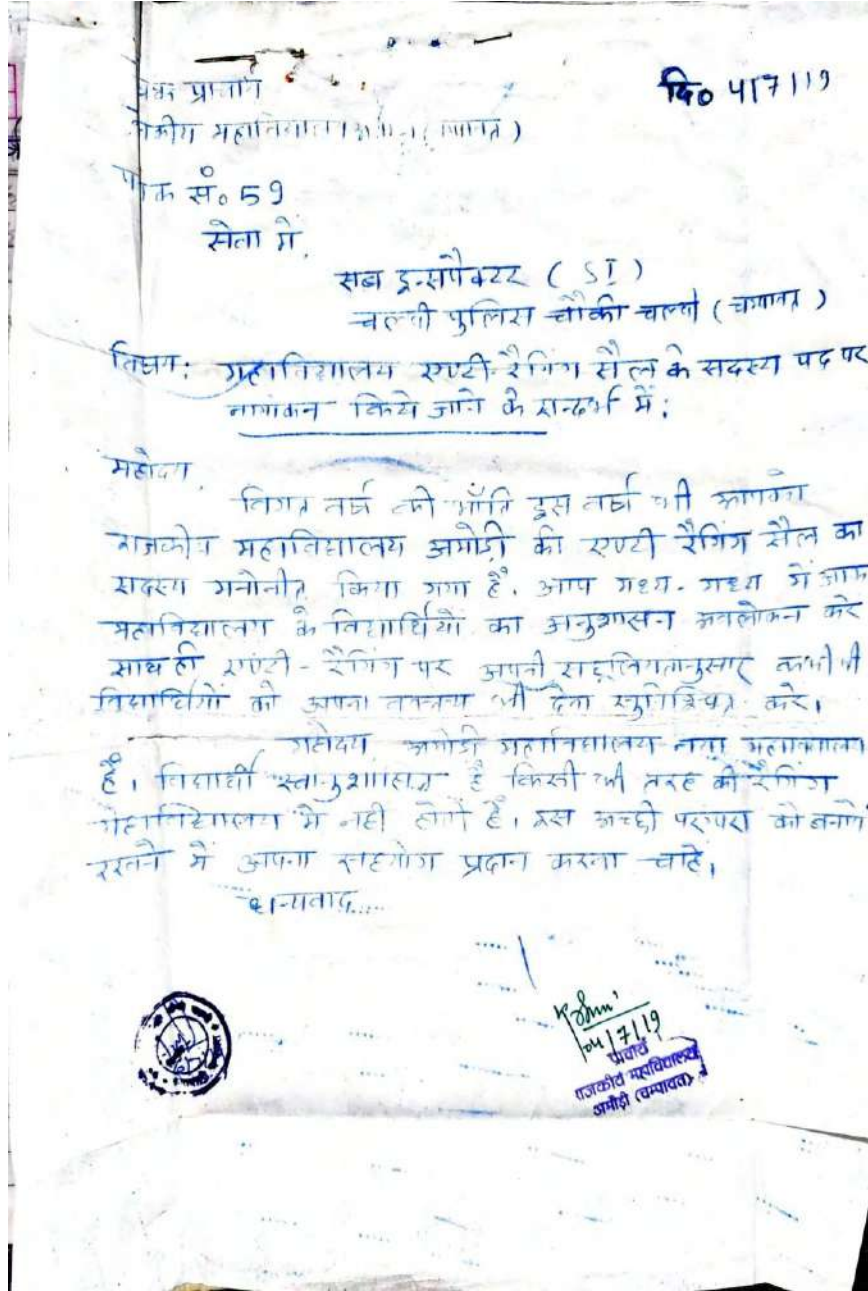 प्राचार्य
महाविद्यालय
दि० 4/7/19
सं० 59
सेवा में,
सब इन्सपैक्टर ( SI )
चल्थी पुलिस चौकी चल्थी ( चम्पावत )
विषय: महाविद्यालय एण्टी-रैगिंग सैल के सदस्य पद पर
नामांकन किये जाने के सन्दर्भ में:
महोदय,
विगत वर्ष की भाँति इस वर्ष भी आपको
राजकीय महाविद्यालय अमोड़ी की एण्टी रैगिंग सैल का
सदस्य मनोनीत किया गया है. आप मध्य-मध्य में आकर
महाविद्यालय के विद्यार्थियों का अनुशासन अवलोकन करे
साथ ही एण्टी-रैगिंग पर अपनी सहूलियतानुसार कभी भी
विद्यार्थियों को अपना वक्तव्य भी देना सुनिश्चित करे।
महोदय, अमोड़ी महाविद्यालय नया महाविद्यालय
है। विद्यार्थी स्वानुशासित है किसी भी तरह की रैगिंग
महाविद्यालय में नही होती है। इस अच्छी परंपरा को बनाये
रखने में अपना सहयोग प्रदान करना चाहे,
धन्यवाद.....
04/7/19
प्राचार्य
राजकीय महाविद्यालय
अमोड़ी (चम्पावत)